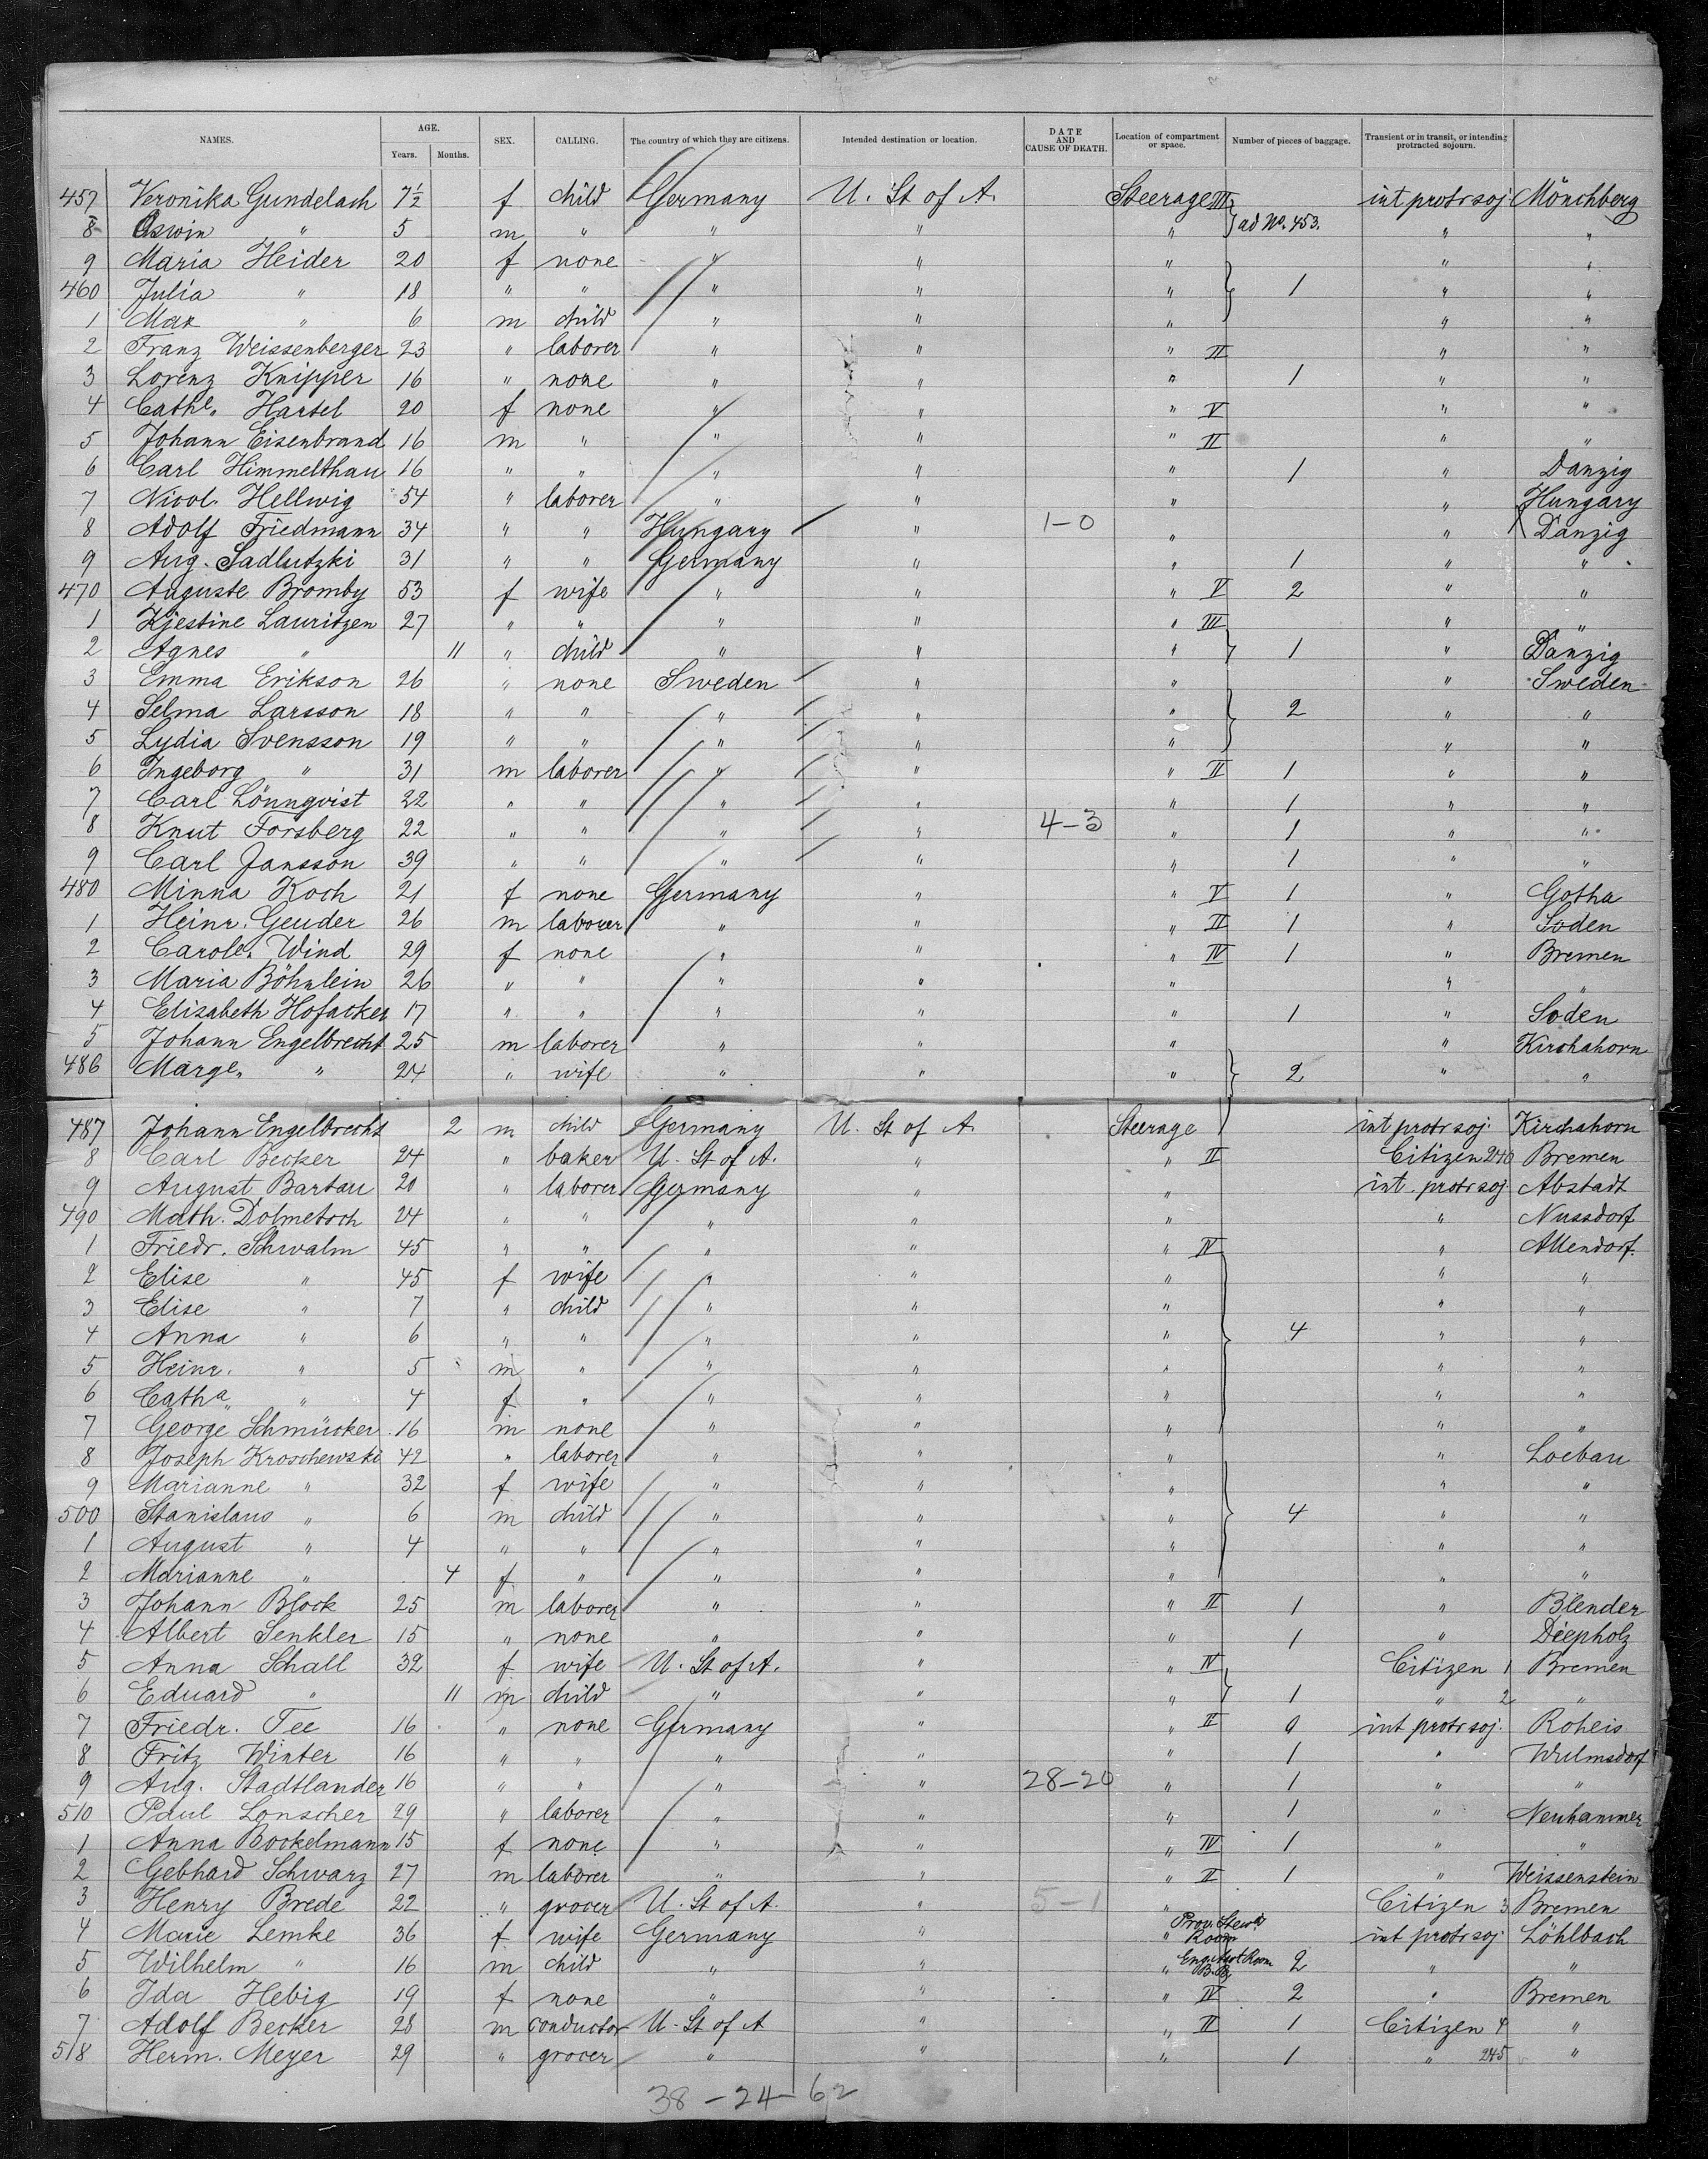 NAMES. AGE. Years. Months. SEX. CALLING. The country of which they are citizens. Intended destination or location. DATE AND CAUSE OF DEATH. Location of compartment or space. Number of pieces of baggage. Transient or in transit, or intending protracted sojourn.
457 Veronika Gundelach 7½ f child Germany U. St of A. Steerage III int protr soj. Mönchberg
8 Oswin " 5 m " " " " } ad No. 453. " "
9 Maria Heider 20 f none " " " " "
460 Julia " 18 " " " " " 1 " "
1 Max " 6 m child " " " " "
2 Franz Weissenberger 23 " laborer " " " II " "
3 Lorenz Knipper 16 " none " " " 1 " "
4 Cathe. Hartel 20 f none " " " V " "
5 Johann Eisenbrand 16 m " " " " II " "
6 Carl Himmelthau 16 " " " " " 1 " Danzig
7 Nicol. Hellwig 54 " laborer " " " " Hungary
8 Adolf Friedmann 34 " " Hungary " 1-0 " " Danzig
9 Aug. Sadlutzki 31 " " Germany " " 1 " "
470 Auguste Bromby 53 f wife " " " V 2 " "
1 Kjestine Lauritzen 27 " " " " " III " "
2 Agnes " 11 " child " " " 1 " Danzig
3 Emma Erikson 26 " none Sweden " " " Sweden
4 Selma Larsson 18 " " " " " 2 " "
5 Lydia Svensson 19 " " " " " " "
6 Ingeborg " 31 m laborer " " " II 1 " "
7 Carl Lönnqvist 22 " " " " " 1 " "
8 Knut Forsberg 22 " " " " 4-3 " 1 " "
9 Carl Jansson 39 " " " " " 1 " "
480 Minna Koch 21 f none Germany " " V 1 " Gotha
1 Heinr. Geuder 26 m laborer " " " II 1 " Soden
2 Carole. Wind 29 f none " " " IV 1 " Bremen
3 Maria Böhnlein 26 " " " " " " "
4 Elizabeth Hofacker 17 " " " " " 1 " Soden
5 Johann Engelbrecht 25 m laborer " " " " Kirchahorn
486 Marge. " 24 " wife " " " 2 " "
487 Johann Engelbrecht 2 m child Germany U. St of A. Steerage int protr soj. Kirchahorn
8 Carl Becker 24 " baker U. St of A. " " II Citizen 240 Bremen
9 August Bartau 20 " laborer Germany " " int. protr soj. Abstadt
490 Math. Dolmetsch 24 " " " " " " Nussdorf
1 Friedr. Schwalm 45 " " " " " IV " Allendorf.
2 Elise " 45 f wife " " " " "
3 Elise " 7 " child " " " " "
4 Anna " 6 " " " " " 4 " "
5 Heinr. " 5 m " " " " " "
6 Catha " 4 f " " " " " "
7 George Schmücker 16 m none " " " " "
8 Joseph Kroschewski 42 " laborer " " " " Loebau
9 Marianne " 32 f wife " " " " "
500 Stanislaus " 6 m child " " " 4 " "
1 August " 4 " " " " " " "
2 Marianne " 4 f " " " " " "
3 Johann Block 25 m laborer " " " II 1 " Blender
4 Albert Senkler 15 " none " " " 1 " Diepholz
5 Anna Schall 32 f wife U. St of A. " " IV Citizen 1 Bremen
6 Eduard " 11 m child " " " 1 " 2 "
7 Friedr. Tee 16 " none Germany " " II 9 int protr soj. Roheis
8 Fritz Winter 16 " " " " " 1 " Wulmsdorf
9 Aug. Stadtlander 16 " " " " 28-20 " 1 " "
510 Paul Lonscher 29 " laborer " " " 1 " Neuhammer
1 Anna Bockelmann 15 f none " " " IV 1 " "
2 Gebhard Schwarz 27 m laborer " " " II 1 " Weissenstein
3 Henry Brede 22 " grocer U. St of A. " 5-1 " Citizen 3 Bremen
4 Marie Lemke 36 f wife Germany " " Prov. Stewd Room int protr soj. Löhlbach
5 Wilhelm " 16 m child " " " Room 2 " "
6 Ida Hebig 19 f none " " " IV 2 " Bremen
7 Adolf Becker 28 m conductor U. St of A " " II 1 Citizen 4 "
518 Herm. Meyer 29 " grocer " " " 1 " 245 "
38-24-62